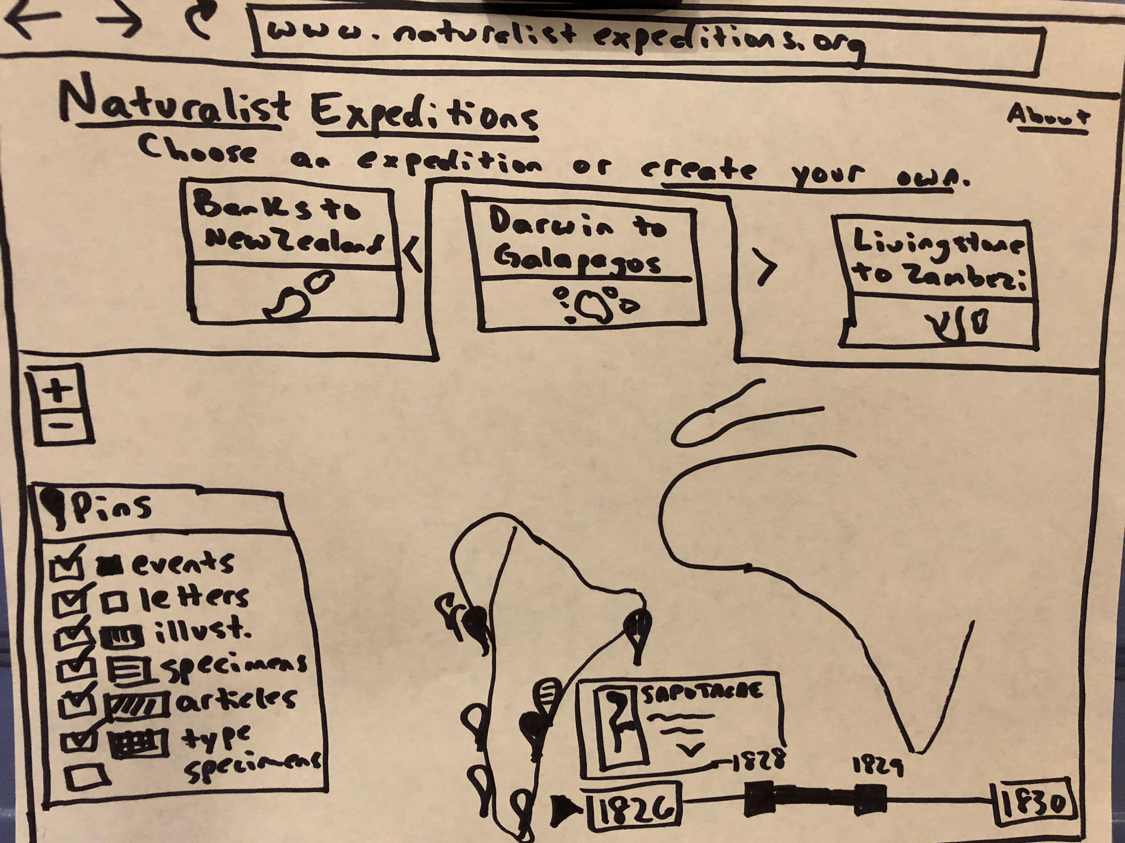 www.naturalistexpeditions.org
Naturalist Expeditions
About
Choose an expedition or create your own.
Banks to
New Zealand
<
Darwin to
Galapagos
>
Livingstone
to Zambezi
+
-
Pins
events
letters
illust.
specimens
articles
type
specimens
SAPOTACAE
1828
1829
1826
1830